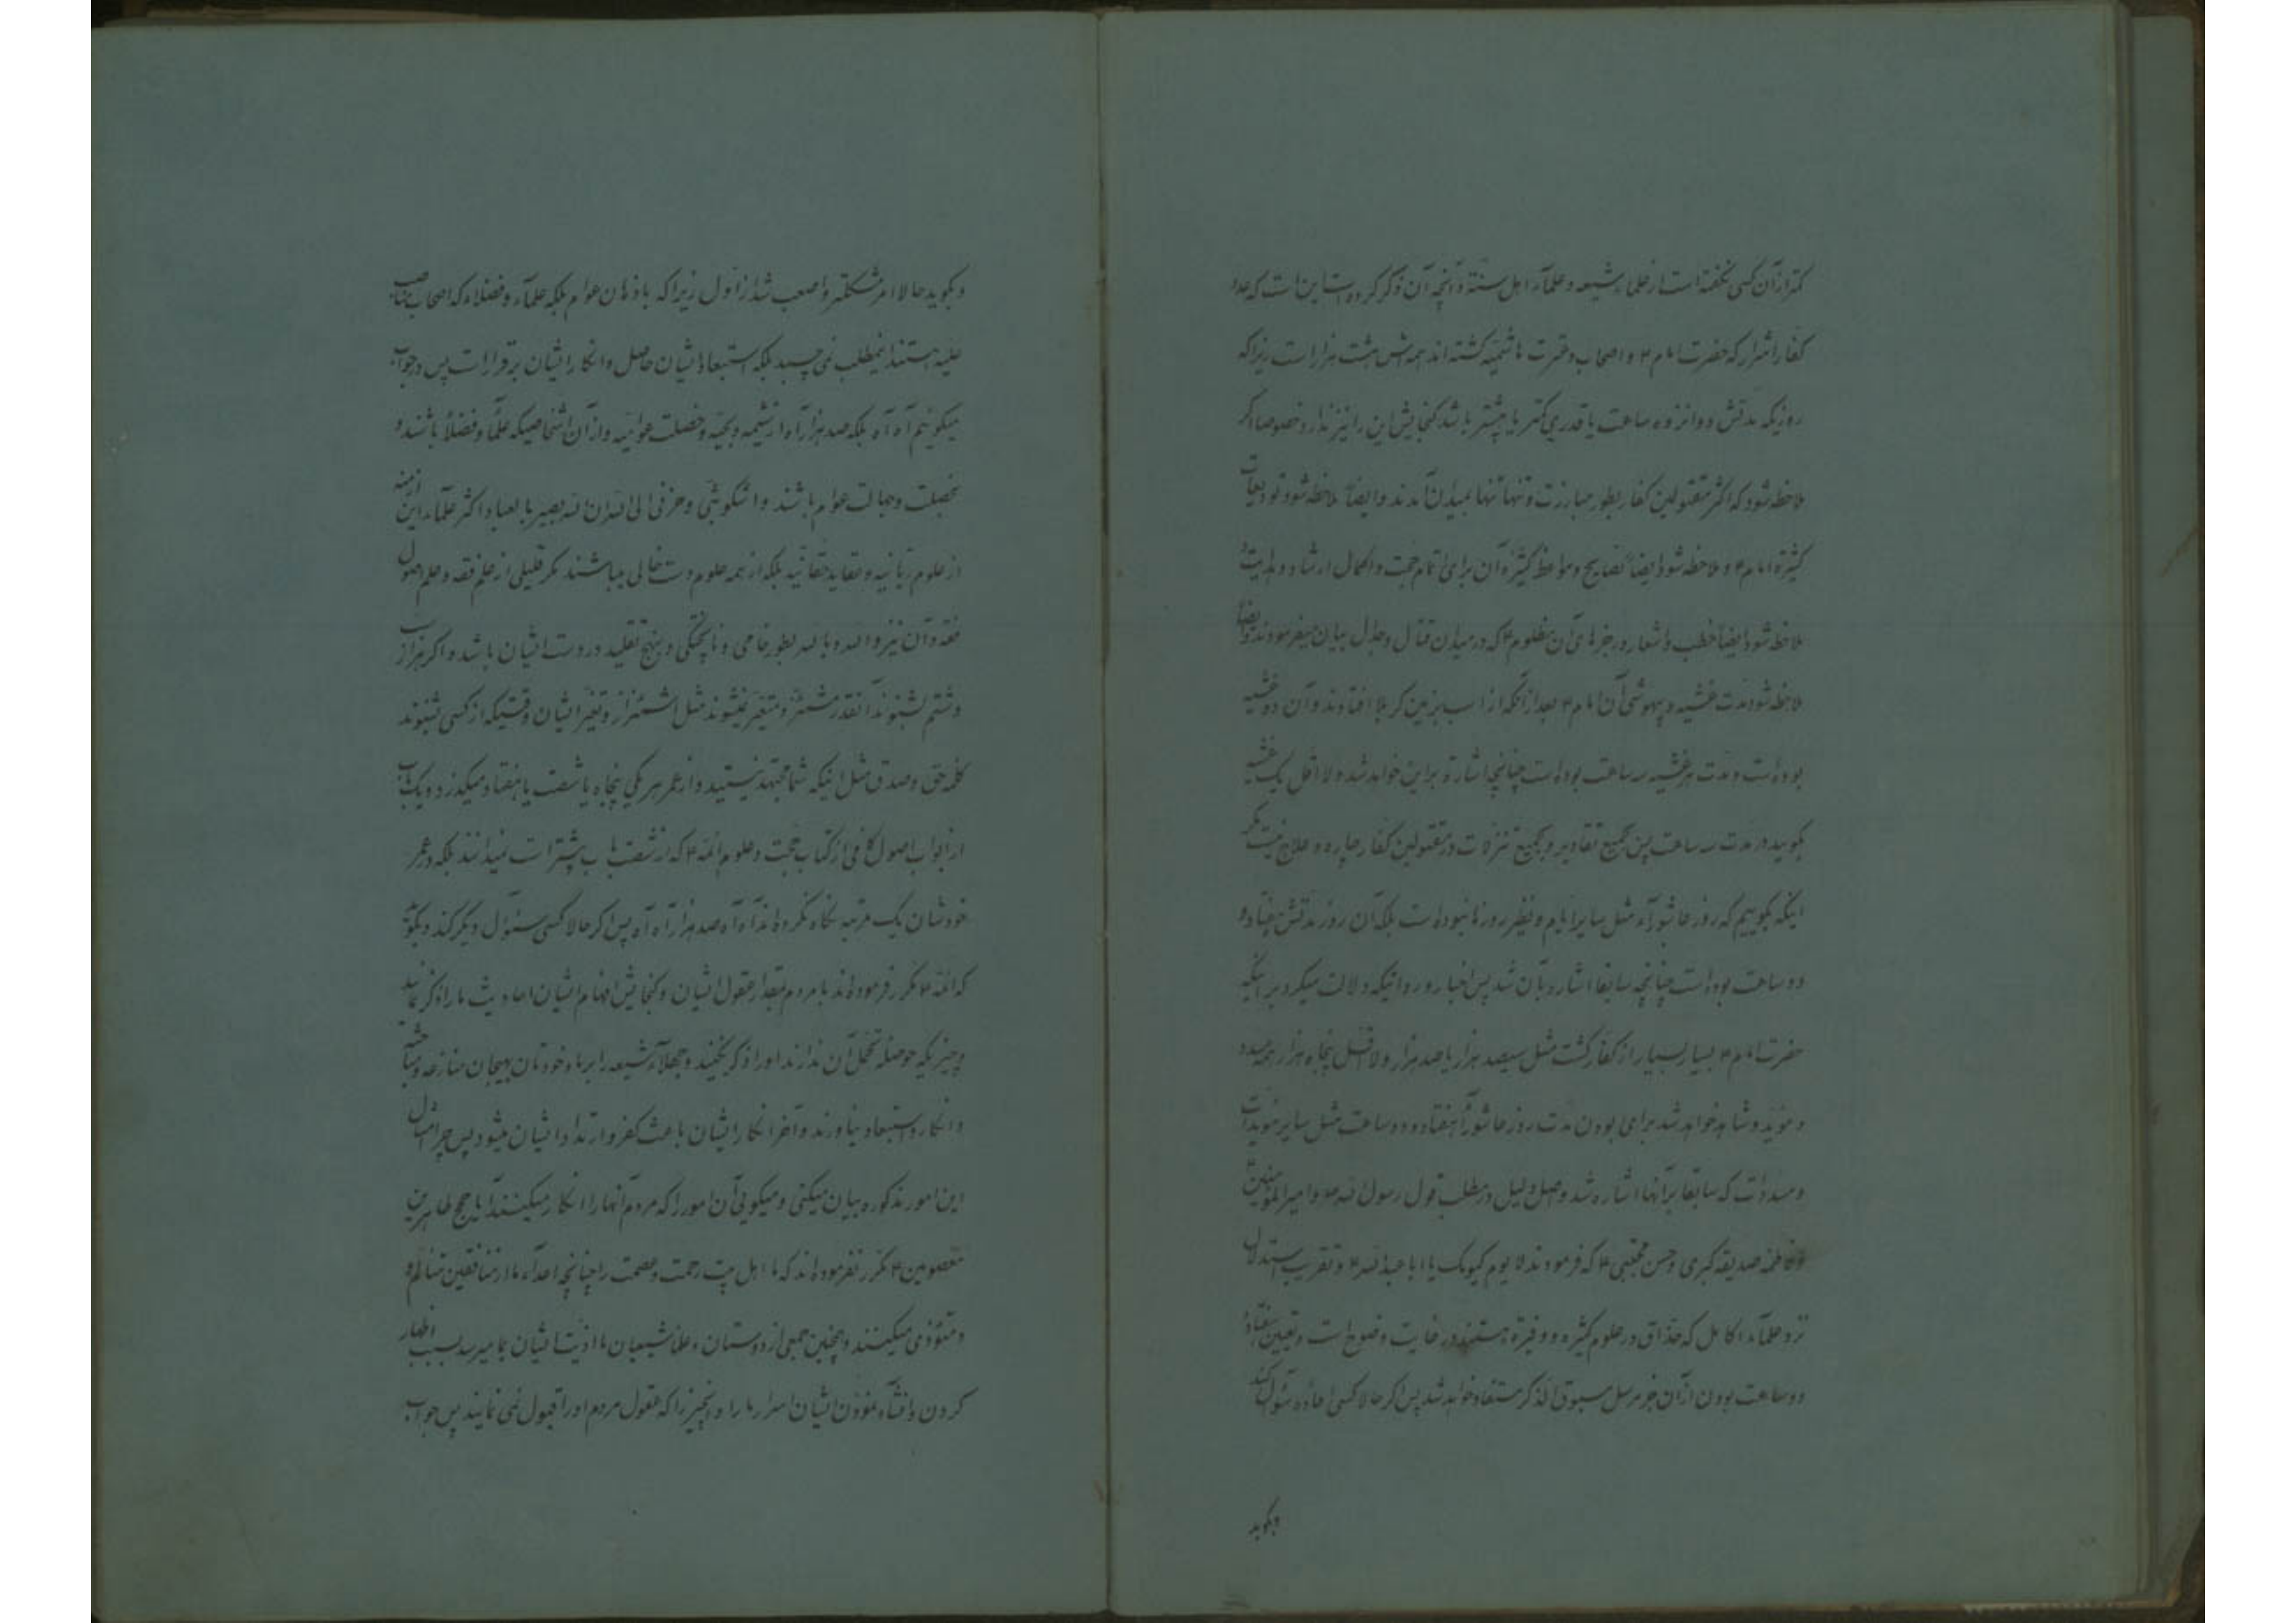 کمتر از آن کسی نگفته است از علماء شیعه و علمآء اهل سنة و آنچه آن ذکر کرده است این است که عدد
کفار اشرار که حضرت امام ۴ و اصحاب و عترت هاشمیه کشته اند همه اش هشت هزار است زیرا که
روزیکه مدتش دوازده ساعت یا قدری کمتر یا بیشتر باشد گنجایش این را نیز ندارد خصوصا اگر
ملاحظه شود که اکثر مقتولین کفار بطور مبارزت و تنها تنها بمیدان آمدند و ایضا ملاحظه شود تودیعات
کثیرهٔ امام ۴ و ملاحظه شود ایضا نصایح و مواعظ کثیره آن برای اتمام حجت و اکمال ارشاد و هدایت و
ملاحظه شود ایضا خطب و اشعار و رجزهای آن مظلوم ۴ که در میدان قتال و جدال بیان میفرمودند و ایضا
ملاحظه شود مدت غشیه و بیهوشی آن امام ۴ بعد از آنکه از اسب بزمین کربلا افتادند و آن دو غشیه
بوده است و مدت هر غشیه سه ساعت بوده است چنانچه اشارة براین خواهد شد و لااقل یک غشیه
بگویید در مدت سه ساعت پس بجمیع تقادیر و بجمیع تنزلات در مقتولین کفار چاره و علاج نیست مگر
اینکه بگوییم که روز عاشورآء مثل سایر ایام و نظیر روزها نبوده است بلکه آن روز مدتش هفتاد و
دو ساعت بوده است چنانچه سابقا اشاره بآن شد پس اخبار و روایاتیکه دلالت میکرد بر اینکه
حضرت امام ۴ بسیار بسیار از کفار کشت مثل سیصد هزار یا صد هزار و لااقل پنجاه هزار همه مسدد
و مؤید و شاهد خواهد شد برای بودن مدت روز عاشورآ هفتاد و دو ساعت مثل سایر مؤیدات
و مسددات که سابقا بر آنها اشاره شد و اصل دلیل در مطلب قول رسول الله ص و امیر المؤمنین
و فاطمه صدیقه کبری و حسن مجتبی ۴ که فرمودند لا یوم کیومک یا ابا عبد الله ۴ و تقریب استدلال
نزد علمآء اکامل که حذاق در علوم کثیره و وفیرة هستند در غایت وضوح است و تعیین هفتاد و
دو ساعت بودن از آن خبر مرسل مسبوق الذکر مستفاد خواهد شد پس اگر حالا کسی اعاده سؤال کند
و بگوید
و بگوید حالا امر مشکلتر و اصعب شد از اول زیرا که باذهان عوام بلکه علمآء و فضلاء که اصحاب مناصب
علیه هستند اینمطلب نمی چسبد بلکه استبعاد ایشان حاصل و انکار ایشان برقرار است پس در جواب
میگوئیم آه آه بلکه صد هزار آه از شیمه و سجیه و خصلت عوامیه و از آن اشخاصیکه علمآء و فضلآء باشند و
بخصلت و جهالت عوام باشند و اشکو بثی و حزنی الی الله ان الله بصیر بالعباد اکثر علمآء این ازمنه
از علوم ربانیه و عقاید حقانیه بلکه از همه علوم دست خالی میباشند مگر قلیلی از علم فقه و علم اصول
فقه و آن نیز والله و بالله بطور خامی و ناپختگی و بنهج تقلید در دست ایشان باشد و اگر هزار سب
و شتم بشنوند آنقدر مشمئز و متغیر نمیشوند مثل اشمئزاز و تغیر ایشان وقتیکه از کسی بشنوند
کلمه حق و صدق مثل اینکه شما مجتهد نیستید و از عمر هر یکی پنجاه یا شصت یا هفتاد میگذرد و یک باب
از ابواب اصول کافی از کتاب حجت و علوم ائمه ۴ که از شصت باب بیشتر است نمیدانند بلکه در عمر
خودشان یک مرتبه نگاه نکرده اند آه آه صد هزار آه آه پس اگر حالا کسی سئوال دیگر کند و بگوید
که ائمه ۴ مکرر فرموده اند بامردم بمقدار عقول ایشان و گنجایش افهام ایشان احادیث ما را ذکر نمایید
و چیزیکه حوصله تحمل آن ندارند او را ذکر نکنید و جهلآء شیعه را بر ما و خودتان بهیجان منازعه و مباحثه
و انکار و استبعاد نیاورند و آخر انکار ایشان باعث کفر و ارتداد ایشان میشود پس چرا امثال
این امور مذکوره بیان میکنی و میگویی آن امور را که مردم آنها را انکار میکنند آیا حجج طاهرین
معصومین ۴ مکرر نفرموده اند که ما اهل بیت رحمت و عصمت را چنانچه اعداء ما از منافقین متألم و
و متؤذی میکنند و همچنین جمعی از دوستان و علناً شیعیان ما اذیت ایشان بما میرسد بسبب اظهار
کردن و افشآء نمودن ایشان اسرار ما را و آنچیز را که عقول مردم او را قبول نمی نمایند پس جواب